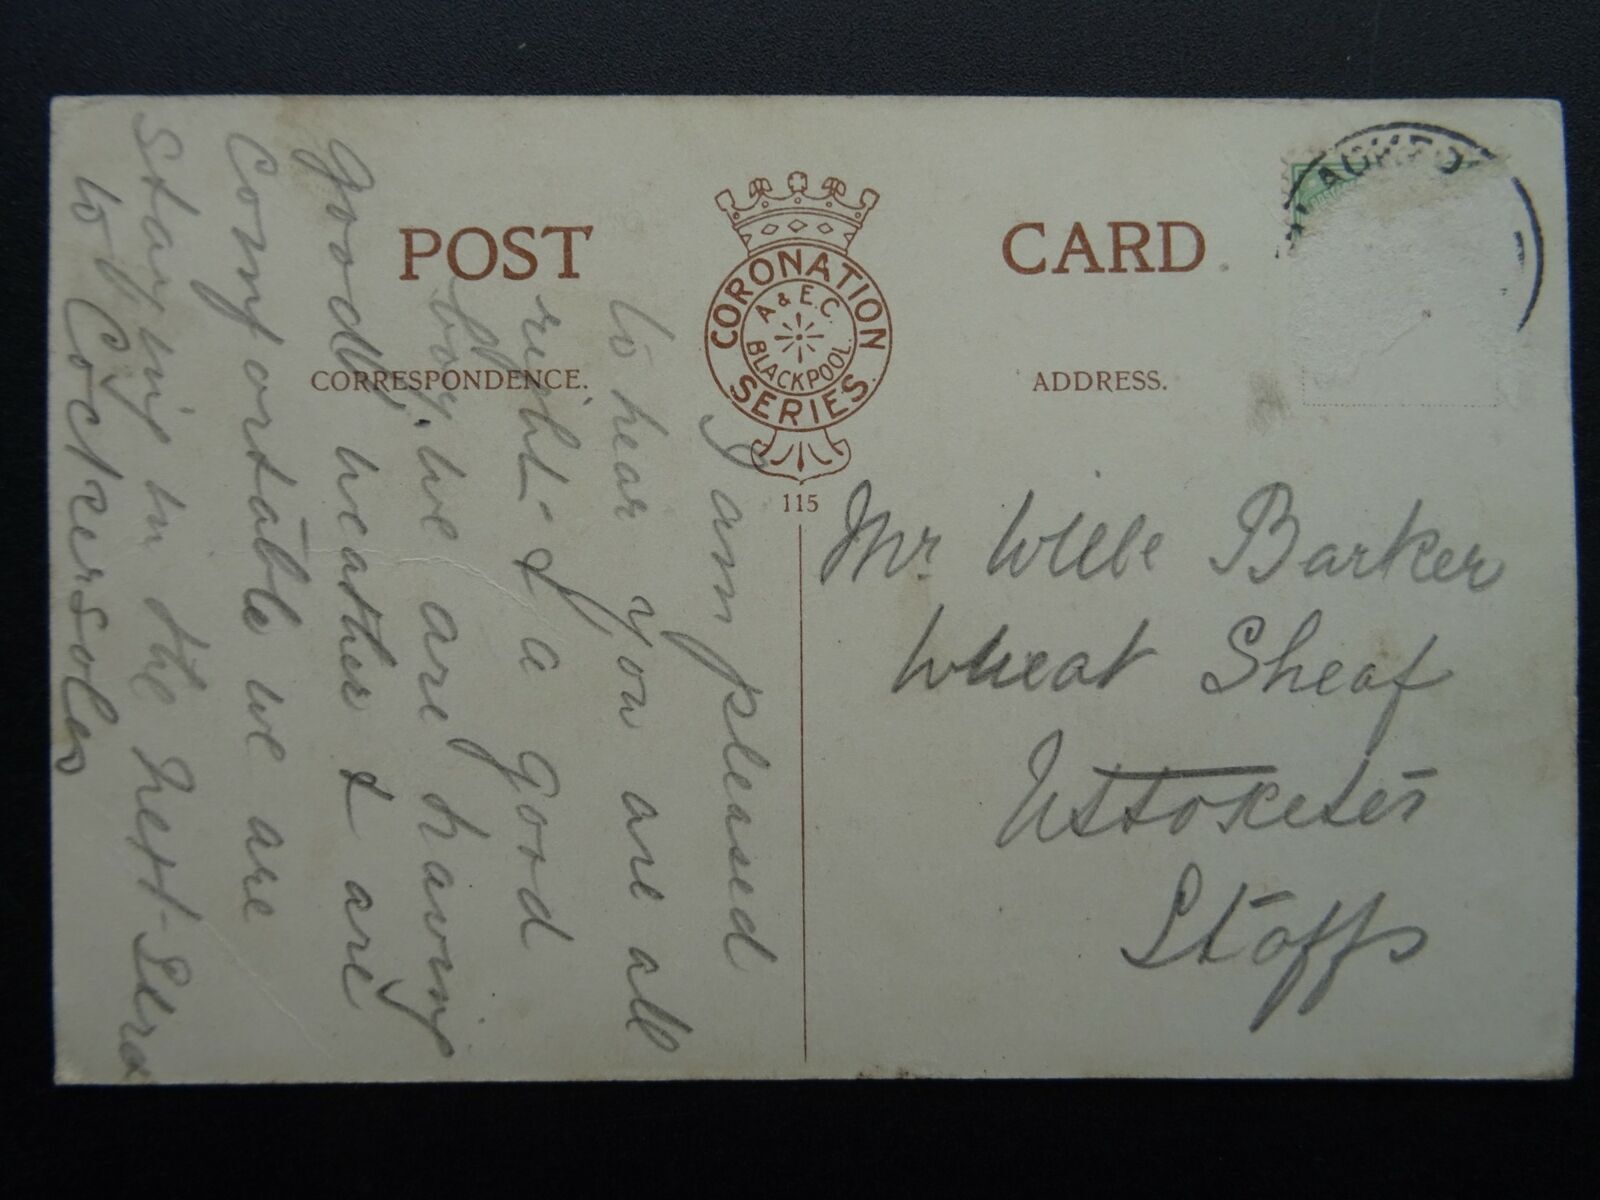 POST CARD
CORONATION SERIES
A & E. C. BLACKPOOL.
115
CORRESPONDENCE.
ADDRESS.
I am pleased
to hear you are all
right & a good
boy. we are having
good weather & are
Comfortable we are
staying in the next
to Cockersoles
Mr Barker
Wheat Sheaf
Uttoxeter
Staffs